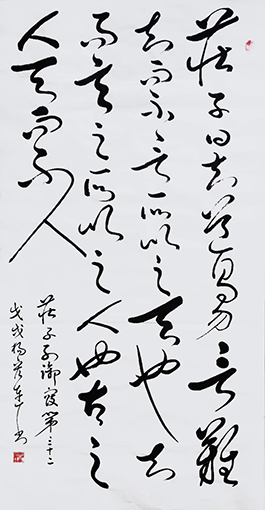 莊子曰知道易勿言難
知而不言所以之天也知
而言之所以之人也古之
人天而不人
莊子列御寇第三十二
戊戌楊書